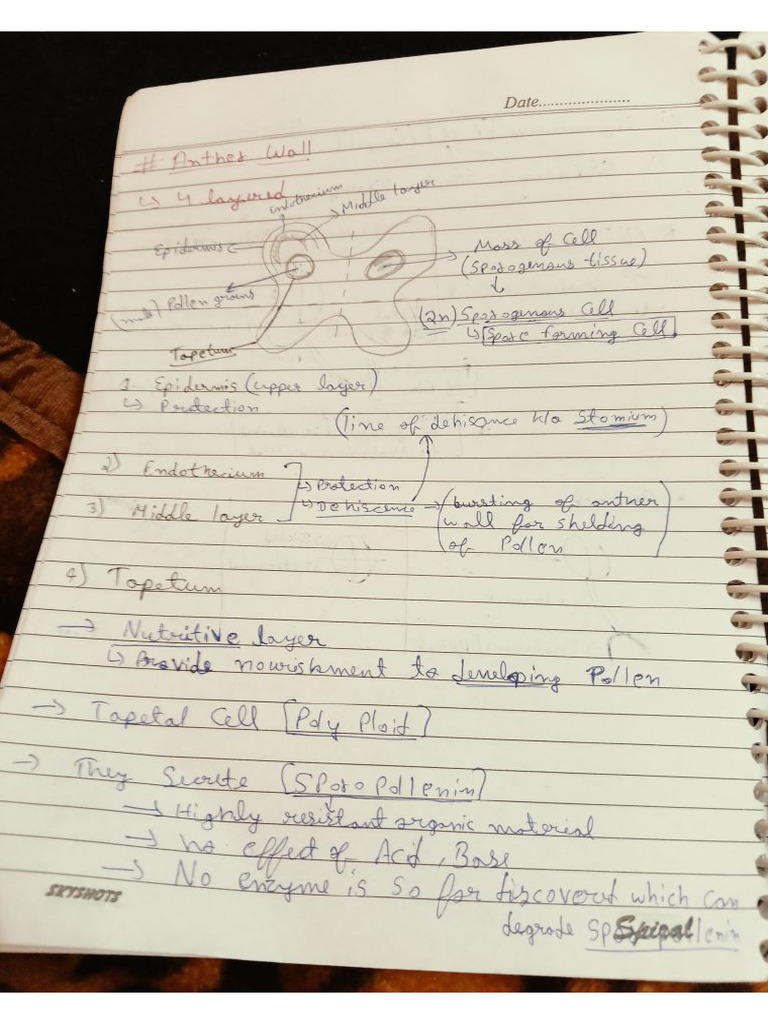 Date.....................
# Anther Wall
↳ 4 layered
Endothecium
Middle layer
Epidermis
Mass of Cell
(Sporogenous tissue)
Pollen grains
(2n) Sporogenous Cell
↳ Spore forming Cell
Tapetum
1. Epidermis (upper layer)
↳ Protection
(line of dehisance k/a Stomium)
2) Endothecium
→ Protection
3) Middle layer
↳ Dehiscence → (bursting of anther
wall for shelding
of Pollen)
4) Tapetum
→ Nutritive layer
↳ Provide nourishment to developing Pollen
→ Tapetal Cell [Poly Ploid]
→ They Secrete [Sporopollenin]
→ Highly resistant organic material
→ no effect of Acid, Base
→ No enzyme is so far discoverd which can
degrade Sporopollenin
SKYSHOTS
Spiral